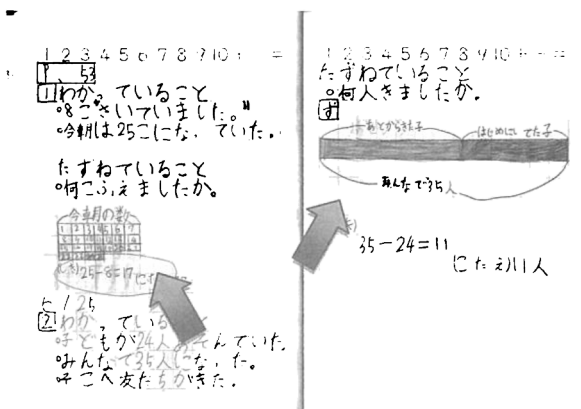 1 2 3 4 5 6 7 8 9 10
P. 53
1 わかっていること
○8こさいていました。
○今朝は25こになっていた。
たずねていること
○何こふえましたか。
今朝の数
1 2 3 4 5 6 7
(しき) 25-8=17
2 わかっている
○子どもが24人 んでいた。
○みんなで35人になった。
○そこへ友だちがきた。
1 2 3 4 5 6 7 8 9 10
たずねていること
○何人きましたか。
ず
あとからきた子
はじめにいてた子
みんなで35人
35-24=11
こたえ11人